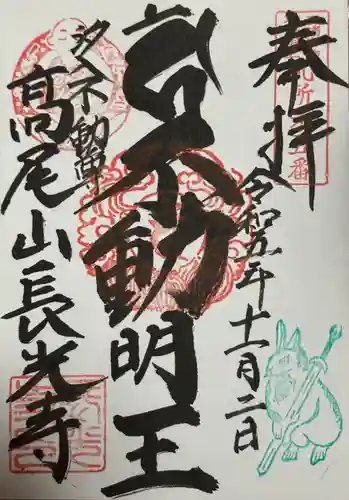 奉拝
令和五年十一月二日
不動明王
不動尊
高尾山長光寺